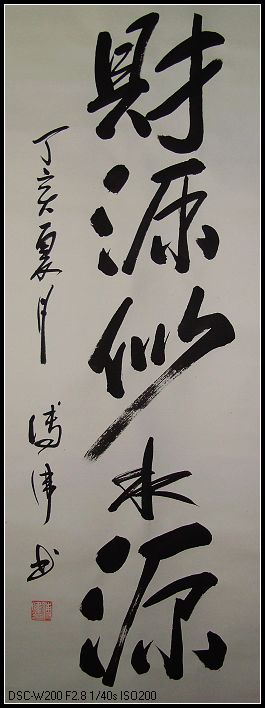 財源似水源
丁亥夏月
書
DSC-W200 F2.8 1/40s ISO200